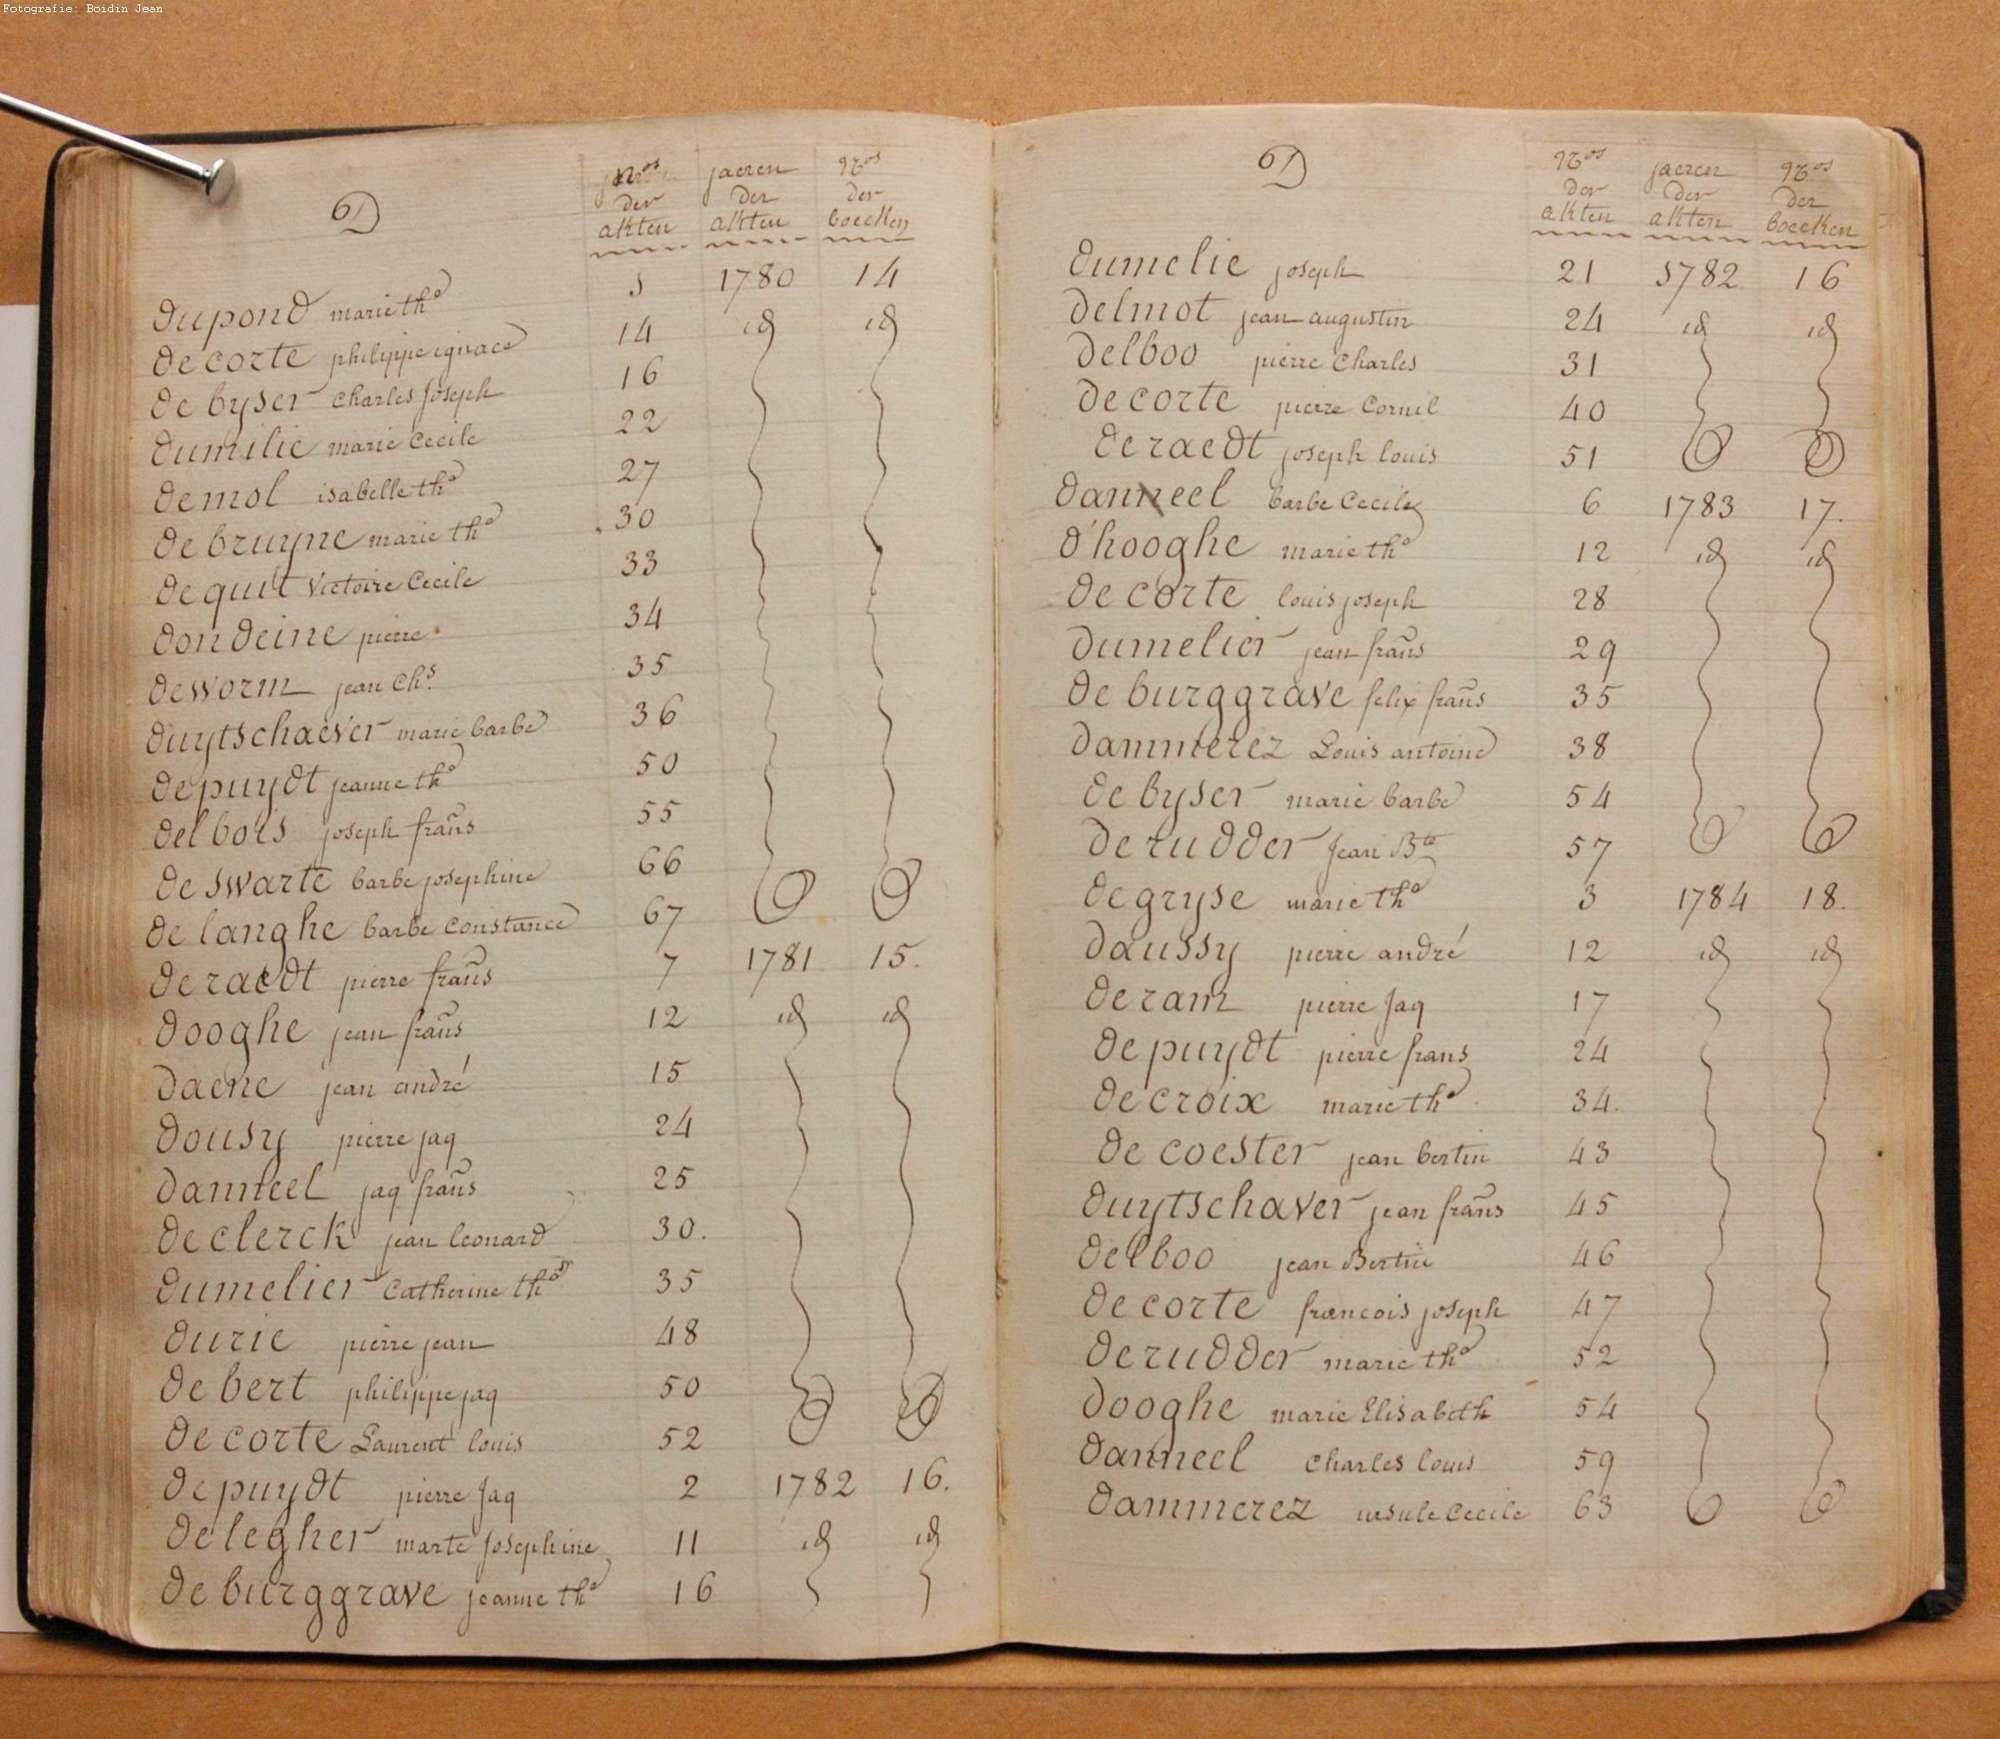 Fotografie: Boidin Jean
D
Nros der akten jaeren der akten Nros der boecken
dupond marie the 1 1780 14
de corte philippe ignace 14 id id
de byser Charles Joseph 16
dumilie marie Cecile 22
demol isabelle the 27
de bruyne marie the 30
de quit Victoire Cecile 33
dondeine pierre 34
deworm jean Chs. 35
duytschaever marie barbe 36
depuydt jeanne the 50
delbois joseph frans 55
de swarte barbe josephine 66
de langhe barbe Constance 67
de raedt pierre frans 7 1781 15.
dooghe jean frans 12 id id
daene jean andré 15
dousy pierre jaq 24
danneel jaq frans 25
de clerck jean leonard 30.
dumelier Catherine the 35
durie pierre jean 48
de bert philippe jaq 50
de corte Laurent louis 52
depuydt pierre Jaq 2 1782 16.
de legher marte Josephine 11 id id
de burggrave jeanne the 16
D
Nros der akten jaeren der akten Nros der boecken
dumelie joseph 21 1782 16
delmot jean augustin 24 id id
delboo pierre Charles 31
de corte pierre Cornil 40
de raedt joseph louis 51
danneel barbe Cecile 6 1783 17.
d'hooghe marie the 12 id id
de corte louis joseph 28
dumelier jean frans 29
de burggrave felix frans 35
dammerez Louis antoine 38
de byser marie barbe 54
de rudder Jean Bte 57
de gryse marie the 3 1784 18.
daussy pierre andré 12 id id
de ram pierre Jaq 17
de puydt pierre frans 24
de croix marie the 34.
de coester jean bertin 43
duytschaver jean frans 45
delboo jean Bertin 46
de corte francois joseph 47
de rudder marie the 52
dooghe marie Elisabeth 54
danneel Charles louis 59
dammerez ursule Cecile 63